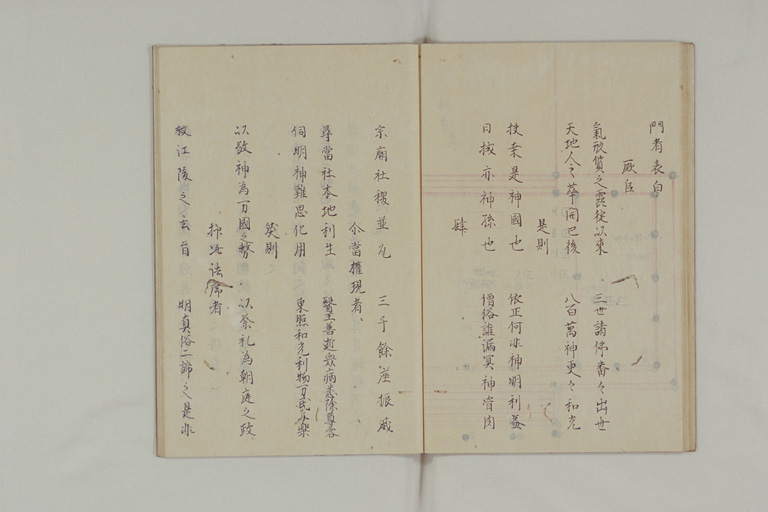 門者表白
厥以
氣形質之霞從以來 三世諸佛番々出世
天地人之華開已後 八百萬神更々和光
是則
扶桑是神國也 依正何非神明利益
日域亦神孫也 僧俗誰漏冥神皆肉
肆
宗廟社稷並瓦 三千餘座振威
尓當權現者
尋當社本地利生 醫王善逝衆病悉除
伺明神難思化用 東照和光利物万民
爰則
以敬神為万國之勢 以祭礼為朝廷之政
抑此法席者
教江陵之玄旨 明真俗二諦之是非